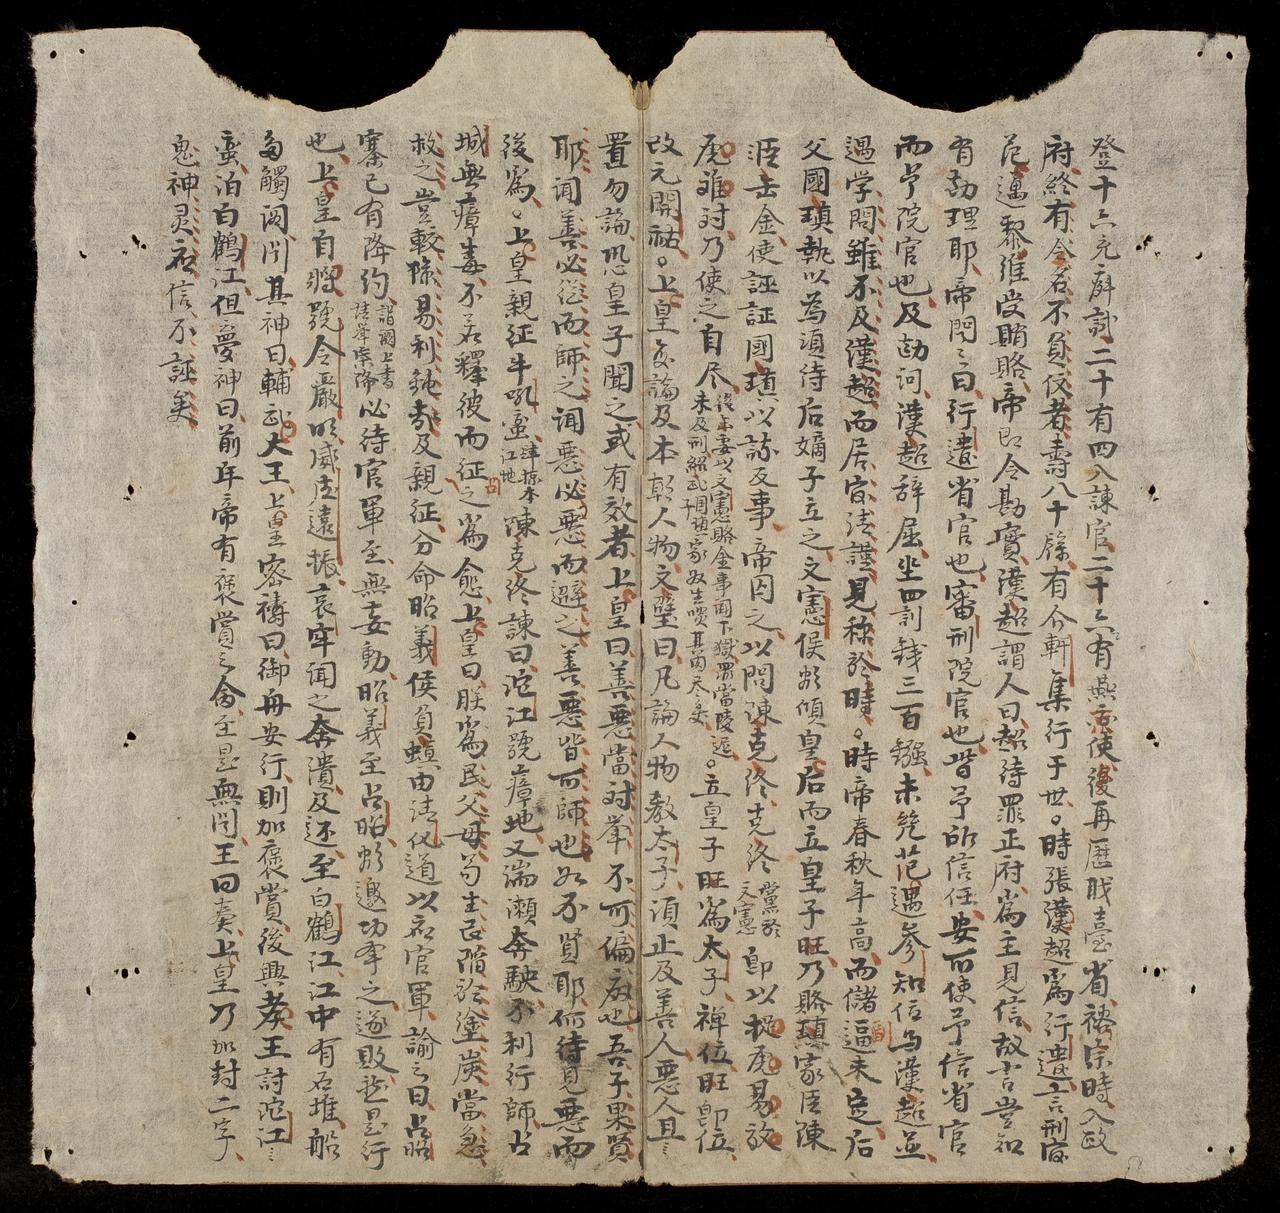 登十六充廨試二十有四入諫官二十六有燕京使後再歷戝臺省裕宗時入政
府終有令名不負仗者壽八十餘有介軒集行于世○時張漢超爲行遣言刑院
范邁黎維受賄賂帝即令勘實漢超謂人曰超待罪正府爲主見信故言豈知
有劾理耶帝聞之曰行遣省官也審刑院官也皆予所信任安而使予信省官
而予院官也及劾詞漢超辭屈坐罰錢三百鏹未幾范遇參知位与漢超並
遇学問雖不及漢超而居家清謹見称於時○時帝春秋年高而儲逼未定后
父國瑱執以為湏待后嫡子立之文憲侯欲傾皇后而立皇子旺乃賂瑱家臣陳
涯缶金使誣証國瑱以謀反事帝囚之以問陳克終克終黨於文憲即以捉虎易放
虎难对乃使之自尽後年妻以文憲賂金事聞下獄罪當陵迟未及刑紹武子囯瑱家奴生啖其肉尽矣○立皇子旺爲太子禅位旺即位
改元開祐○上皇每論及本朝人物文璧曰凡論人物教太子湏止及善人惡人且
置勿論恐皇子聞之或有效者上皇曰善惡當对挙不可偏廢也吾子果賢
耶闻善必從而師之闻惡必惡而避之善惡皆可師也如不賢耶何待見惡而
後爲○上皇親征牛吼蛮沱江地陳克終諫曰沱江號瘴地又湍瀬奔駛不利行師占
城無瘴毒不若釋彼而征占之爲愈上皇曰朕爲民父母苟生民陷於塗炭當急
救之豈較條易利鈍哉及親征分命昭義侯負螾由清化道以前官軍諭之曰占昭
寨已有降約請挙寨降必待官軍至無妄動昭義至占昭欲邀功牽之遂敗於是行
也上皇自將號令嚴明威声遠振哀牢闻之奔潰及还至白鶴江江中有石堆船
多觸沒问其神曰輔武大王上皇密祷曰御舟安行則加褒賞後興孝王討沱江
蛮泊白鶴江但夢神曰前年帝有褒賞之命至是無闻王回奏上皇乃加封二字
鬼神灵应信不誣矣